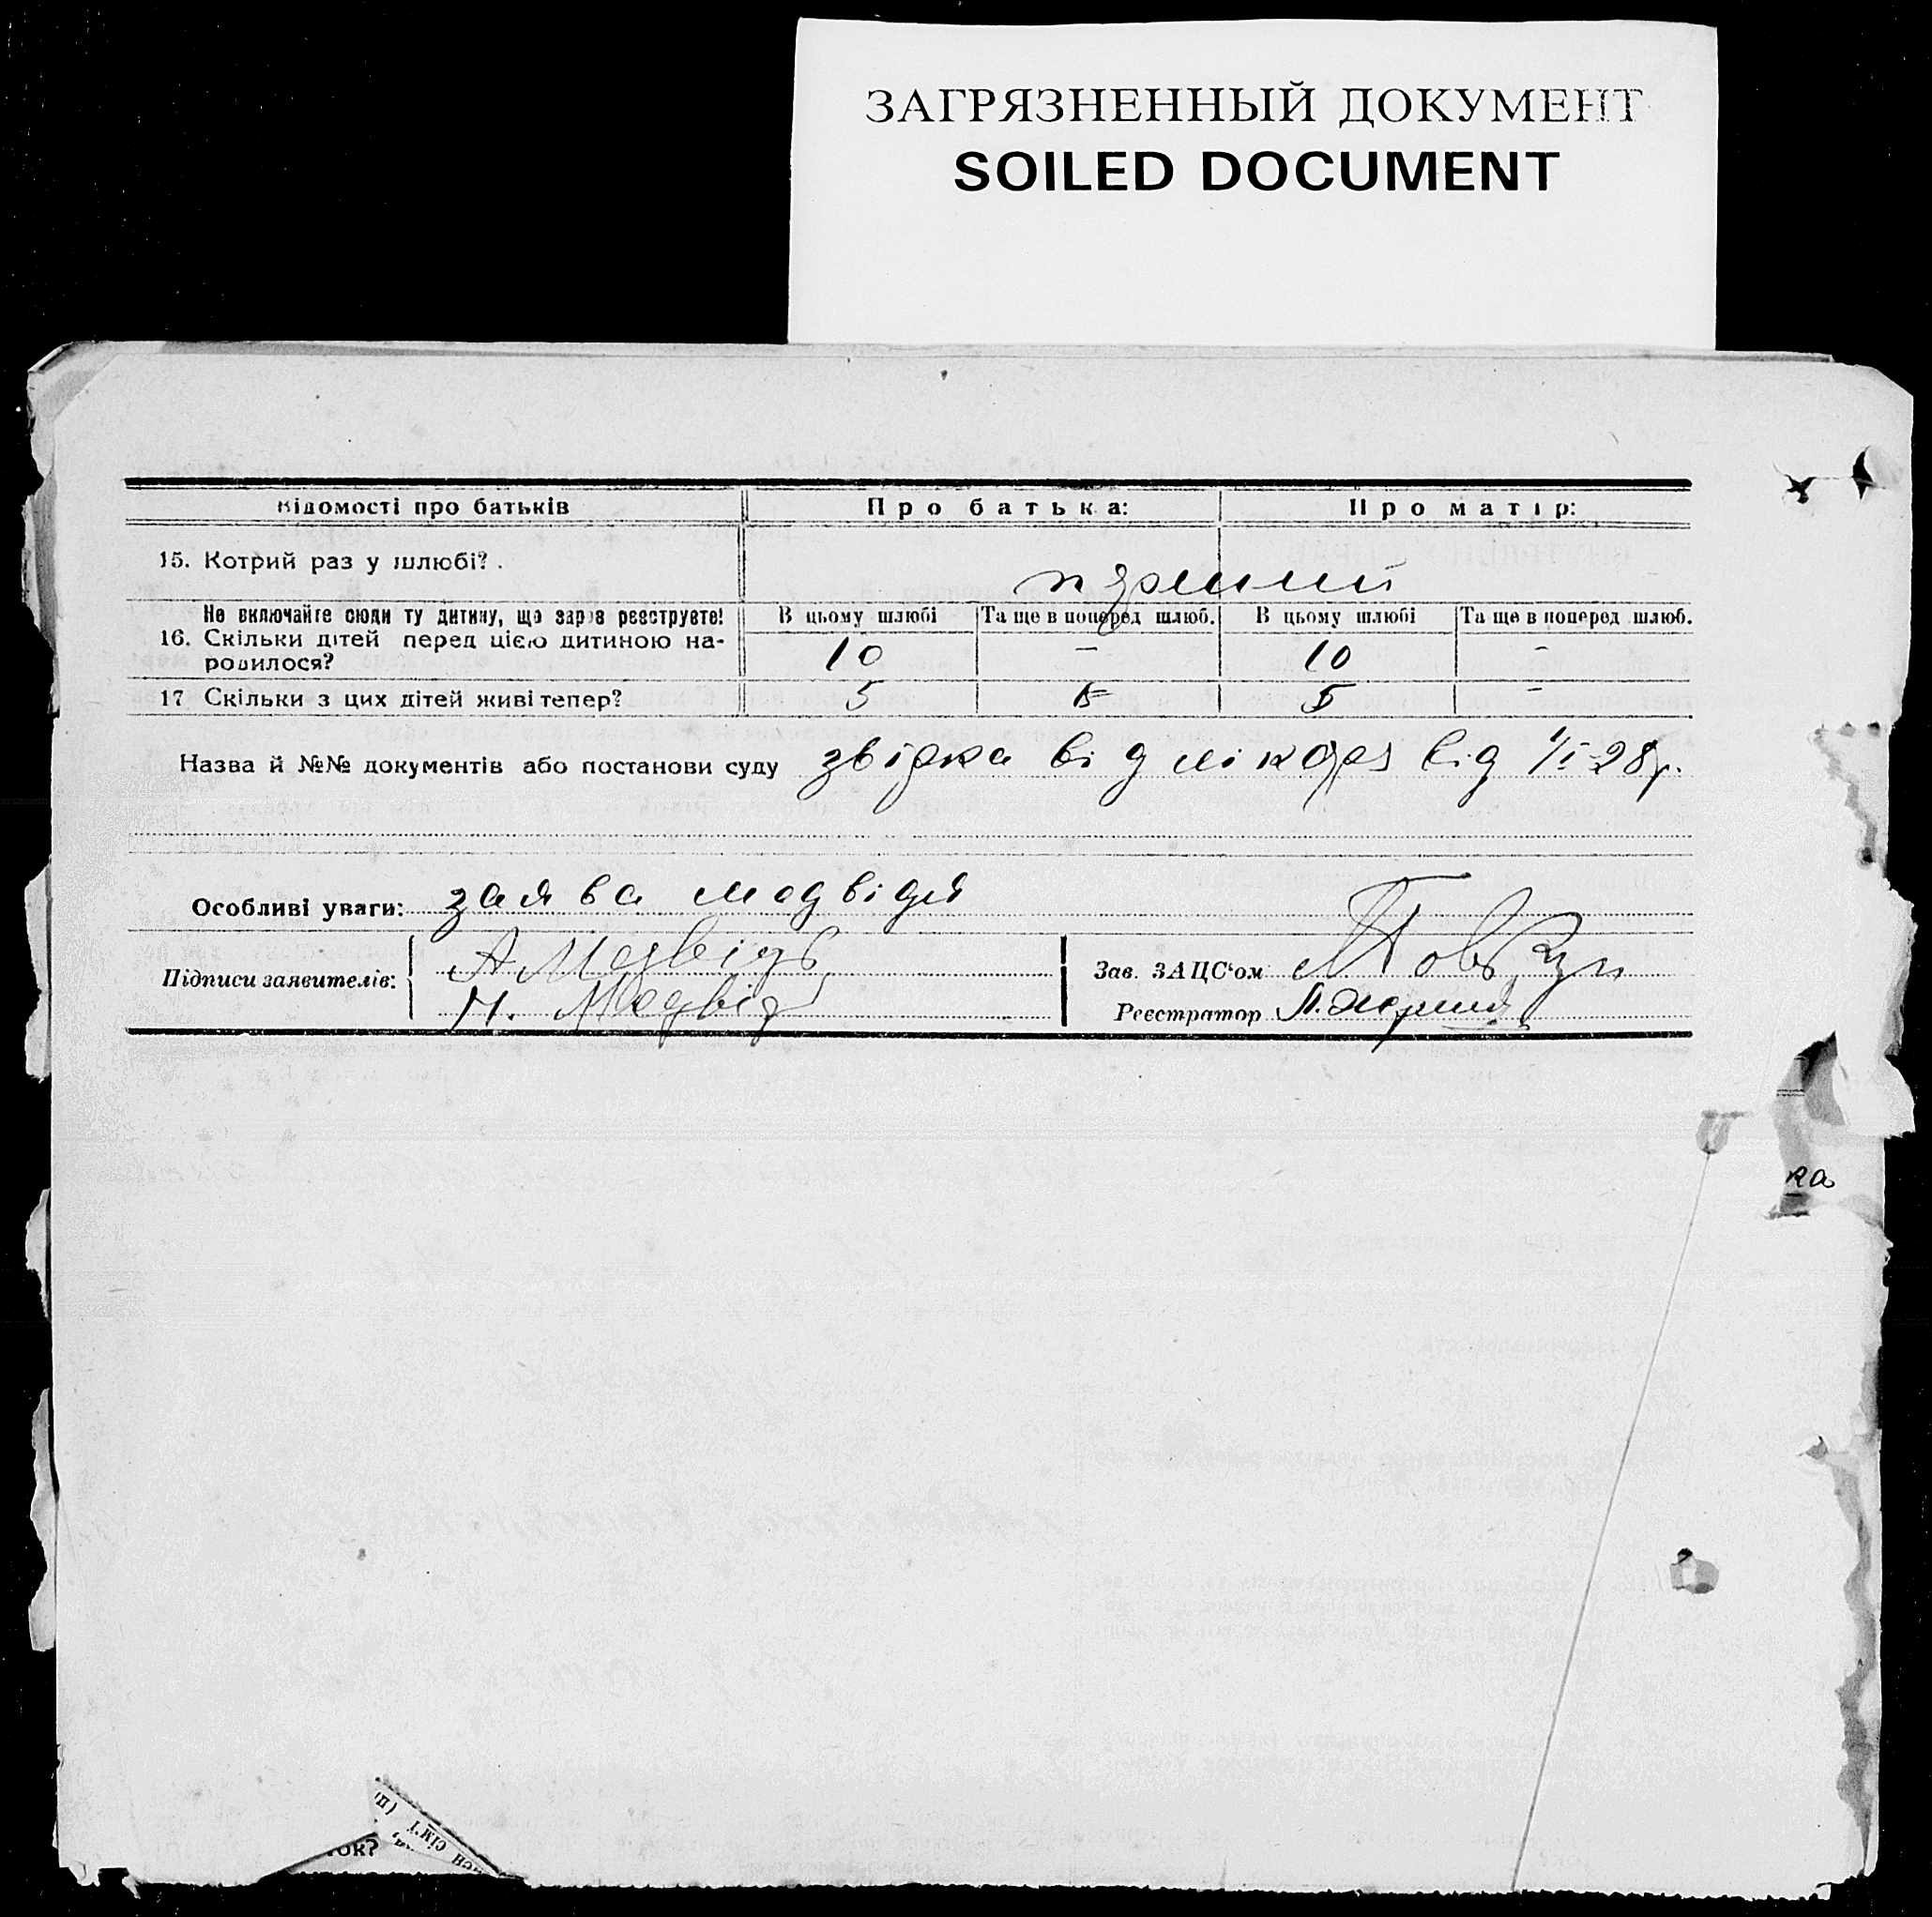 ЗАГРЯЗНЕННЫЙ ДОКУМЕНТ
SOILED DOCUMENT
Відомості про батьків Про батька: Про матір:
15. Котрий раз у шлюбі?
Не включайте сюди ту дитину, що зараз реєструєте! В цьому шлюбі Та ще в поперед шлюб. В цьому шлюбі Та ще в поперед шлюб.
16. Скільки дітей перед цією дитиною на-
родилося? 10 – 10 –
17 Скільки з цих дітей живі тепер? 5 5 –
Назва й №№ документів або постанови суду звірка від лікаря від 1/I-28р.
Особливі уваги: заява медвідя
Підписи заявителів: А Медвідь
М. Медвідь
Зав. ЗАЦС‘ом
Реєстратор
ка
ок?
сім'ї (п